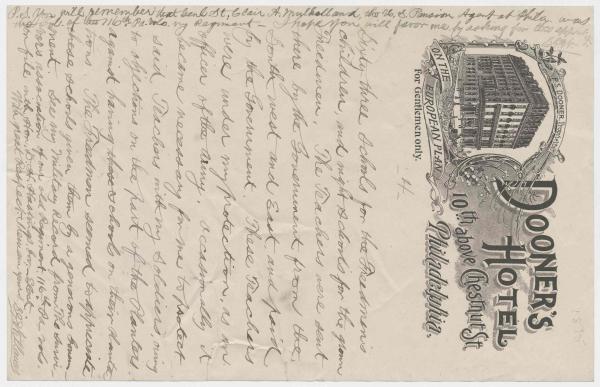 DOONER'S
HOTEL
10th above Chestnut St.
Philadelphia.
P.S. DOONER
ON THE EUROPEAN PLAN
For Gentlemen only.
4
thirty three Schools for the Freedmen's
children and night Schools for the grown
Freedmen. The Teachers were sent
there by the Government from the
west and East and paid
by the Government. These Teachers
were under my protection, as an
officer of the army. Occasionally it
became necessary for me to protect
said Teachers with my Soldiers owing
to objections on the part of the Planters
against having those Schools on their lands
The Freedmen seemed to appreciate
these schools given them by a generous Govern
ment. See my Military Record from the
of my Regiment 116th Pa vols
P.S. You will remember that Genl St. Clair A. Mulholland, the U.S. Pension Agent at Phila was
the Col. of the 116th Pa Vols my Regiment - I hope you will favor me by asking for this